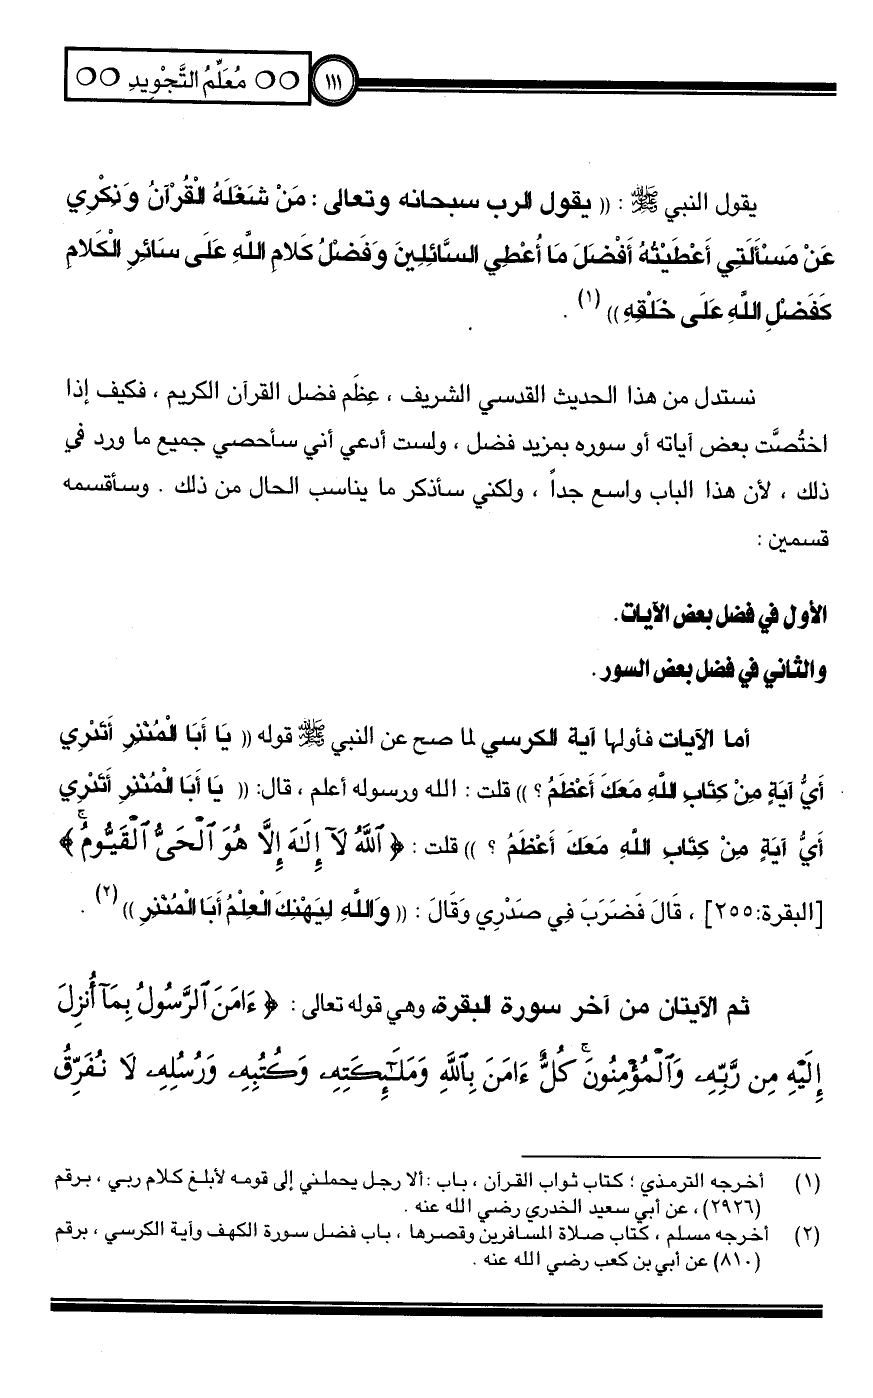 ○○ مُعَلِّمُ التَّجْوِيدِ ○○ ١١١
يقول النبي ﷺ : (( يقول الرب سبحانه وتعالى : مَنْ شَغَلَهُ الْقُرْآنُ وَذِكْرِي
عَنْ مَسْأَلَتِي أَعْطَيْتُهُ أَفْضَلَ مَا أُعْطِي السَّائِلِينَ وَفَضْلُ كَلامِ اللَّهِ عَلَى سَائِرِ الْكَلامِ
كَفَضْلِ اللَّهِ عَلَى خَلْقِهِ )) (١) .
نستدل من هذا الحديث القدسي الشريف ، عِظَم فضل القرآن الكريم ، فكيف إذا
اختُصَّت بعض آياته أو سوره بمزيد فضل ، ولست أدعي أني سأحصي جميع ما ورد في
ذلك ، لأن هذا الباب واسع جداً ، ولكني سأذكر ما يناسب الحال من ذلك . وسأقسمه
قسمين :
الأول في فضل بعض الآيات.
والثاني في فضل بعض السور.
أما الآيات فأولها آية الكرسي لما صح عن النبي ﷺ قوله (( يَا أَبَا الْمُنْذِرِ أَتَدْرِي
أَيُّ آيَةٍ مِنْ كِتَابِ اللَّهِ مَعَكَ أَعْظَمُ ؟ )) قلت : الله ورسوله أعلم ، قال: (( يَا أَبَا الْمُنْذِرِ أَتَدْرِي
أَيُّ آيَةٍ مِنْ كِتَابِ اللَّهِ مَعَكَ أَعْظَمُ ؟ )) قلت : ﴿ ٱللَّهُ لَآ إِلَٰهَ إِلَّا هُوَ ٱلْحَىُّ ٱلْقَيُّومُ ۚ ﴾
[البقرة:٢٥٥] ، قَالَ فَضَرَبَ فِي صَدْرِي وَقَالَ : (( وَاللَّهِ لِيَهْنِكَ الْعِلْمُ أَبَا الْمُنْذِرِ )) (٢) .
ثم الآيتان من آخر سورة البقرة، وهي قوله تعالى : ﴿ ءَامَنَ ٱلرَّسُولُ بِمَآ أُنزِلَ
إِلَيْهِ مِن رَّبِّهِۦ وَٱلْمُؤْمِنُونَ ۚ كُلٌّ ءَامَنَ بِٱللَّهِ وَمَلَٰٓئِكَتِهِۦ وَكُتُبِهِۦ وَرُسُلِهِۦ لَا نُفَرِّقُ
(١) أخرجه الترمذي ؛ كتاب ثواب القرآن ، باب : ألا رجل يحملني إلى قومه لأبلغ كلام ربي ، برقم
(٢٩٢٦) ، عن أبي سعيد الخدري رضي الله عنه .
(٢) أخرجه مسلم ، كتاب صلاة المسافرين وقصرها ، باب فضل سورة الكهف وآية الكرسي ، برقم
(٨١٠) عن أبي بن كعب رضي الله عنه .